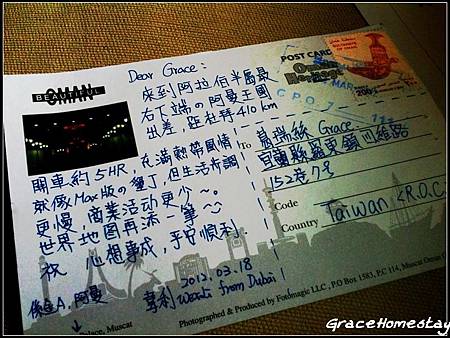 BEAUTIFUL
OMAN
Dear Grace:
來到阿拉伯半島最
右下端の阿曼王國
出差,距杜拜410km
開車約5HR,充滿熱帶風情
就像Max版の墾丁,但生活步調
更慢,商業活動更少~。
世界地圖再添一筆~
祝 心想事成,平安順利.
2012.03.18
Wents from Dubai
係金A,阿曼
Palace, Muscat
POST CARD
Oman
Heritage
200
G.P.O.
To
葛瑞絲 Grace
宜蘭縣羅東鎮河濱路
152巷7号
Code
Country
Taiwan <R.O.C>
Photographed & Produced by Fotomagic LLC , P.O Box 1583, P.C 114, Muscat Oman
GraceHomestay